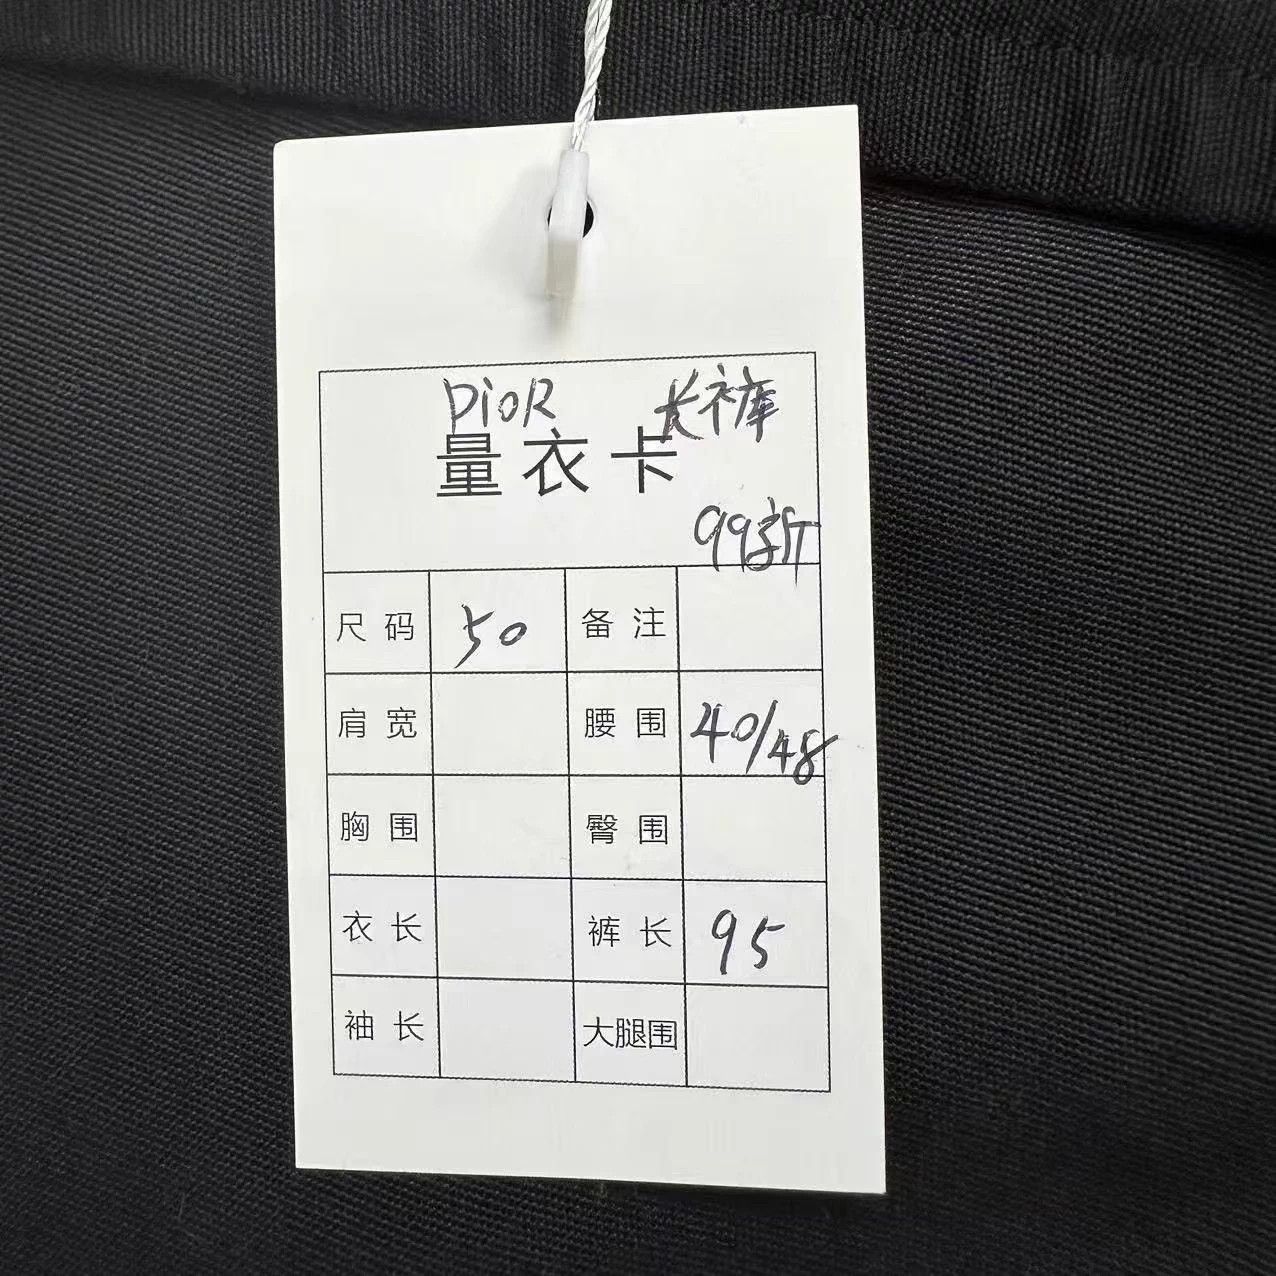 DioR 长裤
量衣卡
99新
尺码 50 备注
肩宽 腰围 40/48
胸围 臀围
衣长 裤长 95
袖长 大腿围